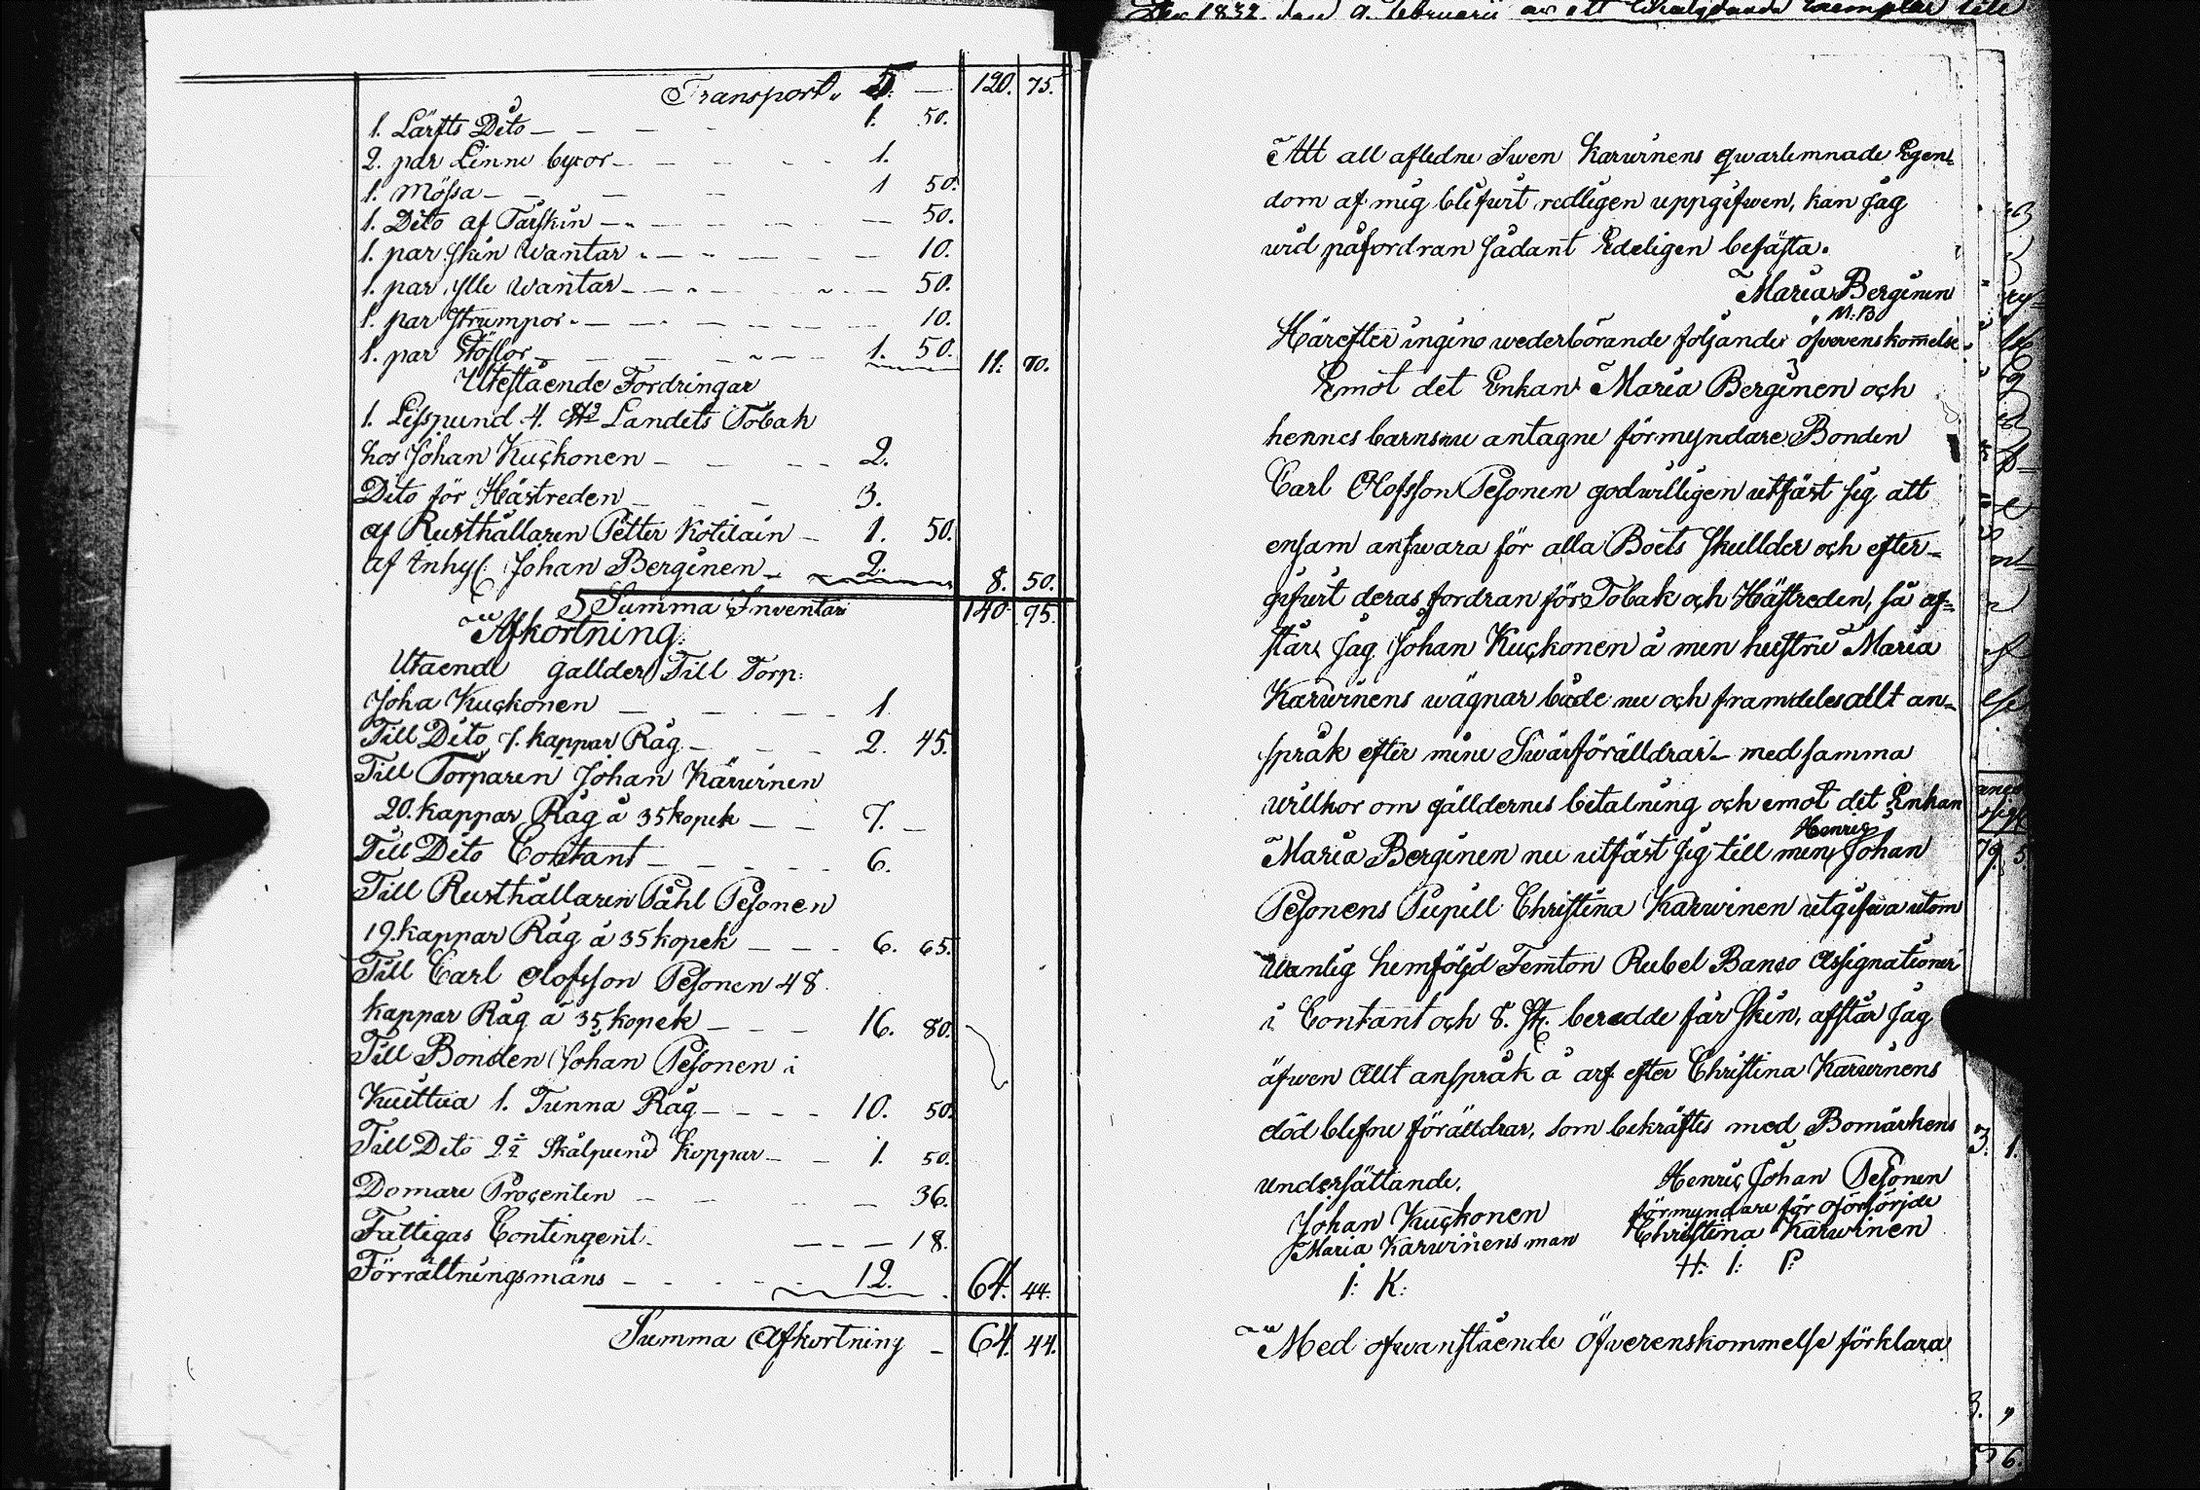 Transport 5. — 120. 75.
1. Lärfts Dito — 1. 50.
2. par Linne byxor — 1.
1. Mössa — 1 50.
1. Dito af Fårskin — 50.
1. par skin Wantar — 10.
1. par ylle Wantar — 50.
1. par Strumpor — 10.
1. par Stöflor — 1. 50. 11. 70.
Utestående Fordringar
1. Lispund 4. Landets Tobak
hos Johan Kuckonen — 2.
Dito för Hästreden — 3.
af Rusthållaren Petter Kotilain — 1. 50.
af Inhys: Johan Berginen — 2. 8. 50.
Summa Inventari 140 95.
Afkortning.
Utaende gallder Till Torp:
Joha Kuckonen — 1
Till Dito 7. kappar Råg — 2. 45.
Till Torparen Johan Karwinen
20. kappar Råg à 35 kopek — 7. —
Till Dito Contant — 6.
Till Rusthållaren Påhl Pesonen
19. kappar Råg à 35 kopek — 6. 65.
Till Carl Olofsson Pesonen 48
kappar Råg à 35 kopek — 16. 80.
Till Bonden Johan Pesonen i
Kuittua 1. Tunna Råg — 10. 50.
Till Dito 2½ Skålpund Koppar — 1. 50.
Domare Procenten — 36.
Fattigas Contingent — 18.
Förrättningsmäns — 12. 64. 44.
Summa Afkortning — 64. 44.
1832. den 9. Februarii av ett likalydande Exemplar till
Att all afledne Swen Karwinens qwarlemnade Egen=
dom af mig blifwit redligen uppgifwen, kan Jag
wid påfordran sådant Edeligen befästa.
Maria Berginen
M:B
Härefter ingins wederbörande foljande öfwerenskommelse.
Emot det Enkan Maria Berginen och
hennes barns nu antagne förmyndare Bonden
Carl Olofsson Pesonen godwilligen utfäst sig att
ensam answara för alla Boets Skullder och efter=
gifwit deras fordran för Tobak och Hästreden, så af=
står Jag Johan Kuckonen å min hustru Maria
Karwinens wägnar både nu och framdeles allt an=
språk efter mine Swärföräldrar — med samma
willkor om gälldernes betalning och emot det Enkan
Maria Berginen nu utfäst sig till min Henric Johan
Pesonens Pupill Christina Karwinen utgifwa utom
wanlig hemföljd Femton Rubel Banco Assignationer
i Contant och 8. St. beredde får Skin, afstår Jag
äfwen Allt anspråk å arf efter Christina Karwinens
död blefne föräldrar, som bekräftes med Bomärkens
undersättande.
Johan Kuckonen
Maria Karwinens man
I: K:
Henric Johan Pesonen
förmyndare för oförsörjde
Christina Karwinen
H: I: P:
Med ofwanstående Öfwerenskommelse förklara